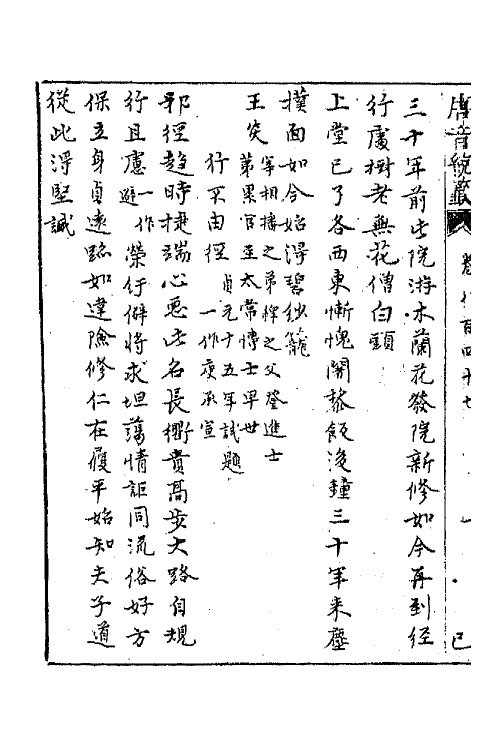 唐音統籖 卷 百四十七 一 己
三十年前此院游木蘭花發院新修如今再到經
行處樹老無花僧白頭
上堂已了各西東慚愧闍黎飯後鐘三十年來塵
撲面如今始得碧紗籠
王炎 宰相播之弟㦤之父登進士
第累官至太常博士早世
行不由徑 貞元十五年試題
一作庾承宣
邪徑趨時捷端心惡此名長衢貴高步大路自規
行且慮 一作避 榮行僻將求坦蕩情詎同流俗好方
保立身貞遠跡如違險修仁在履平始知夫子道
從此得堅誠